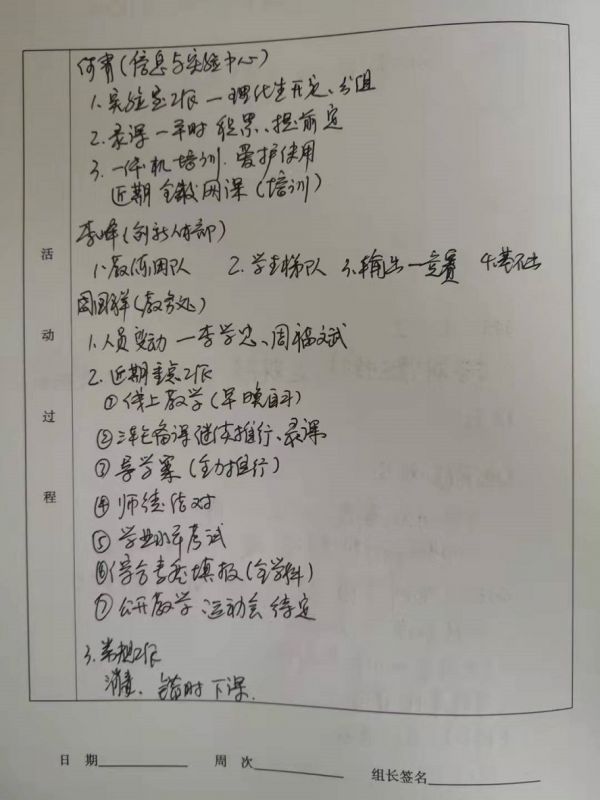 何霄(信息与实验中心)
1.实验室工作—理化生开足、分组
2.录课—平时积累、提前定
3.一体机培训.爱护使用
近期全散网课(培训)
李峰(创新人才部)
1.教师团队 2.学生梯队 3.输出—竞赛 4.基础
周国祥(教务处)
1.人员变动—李学忠、周福文武
2.近期重点工作
①线上教学(早晚自习)
②三轮备课继续推行、录课
③导学案(全力推行)
④师徒结对
⑤学业水平考试
⑥综合素质填报(全学科)
⑦公开教学、运动会待定
3.常规工作
消毒、错时下课.
活动过程
日 期 周 次 组长签名